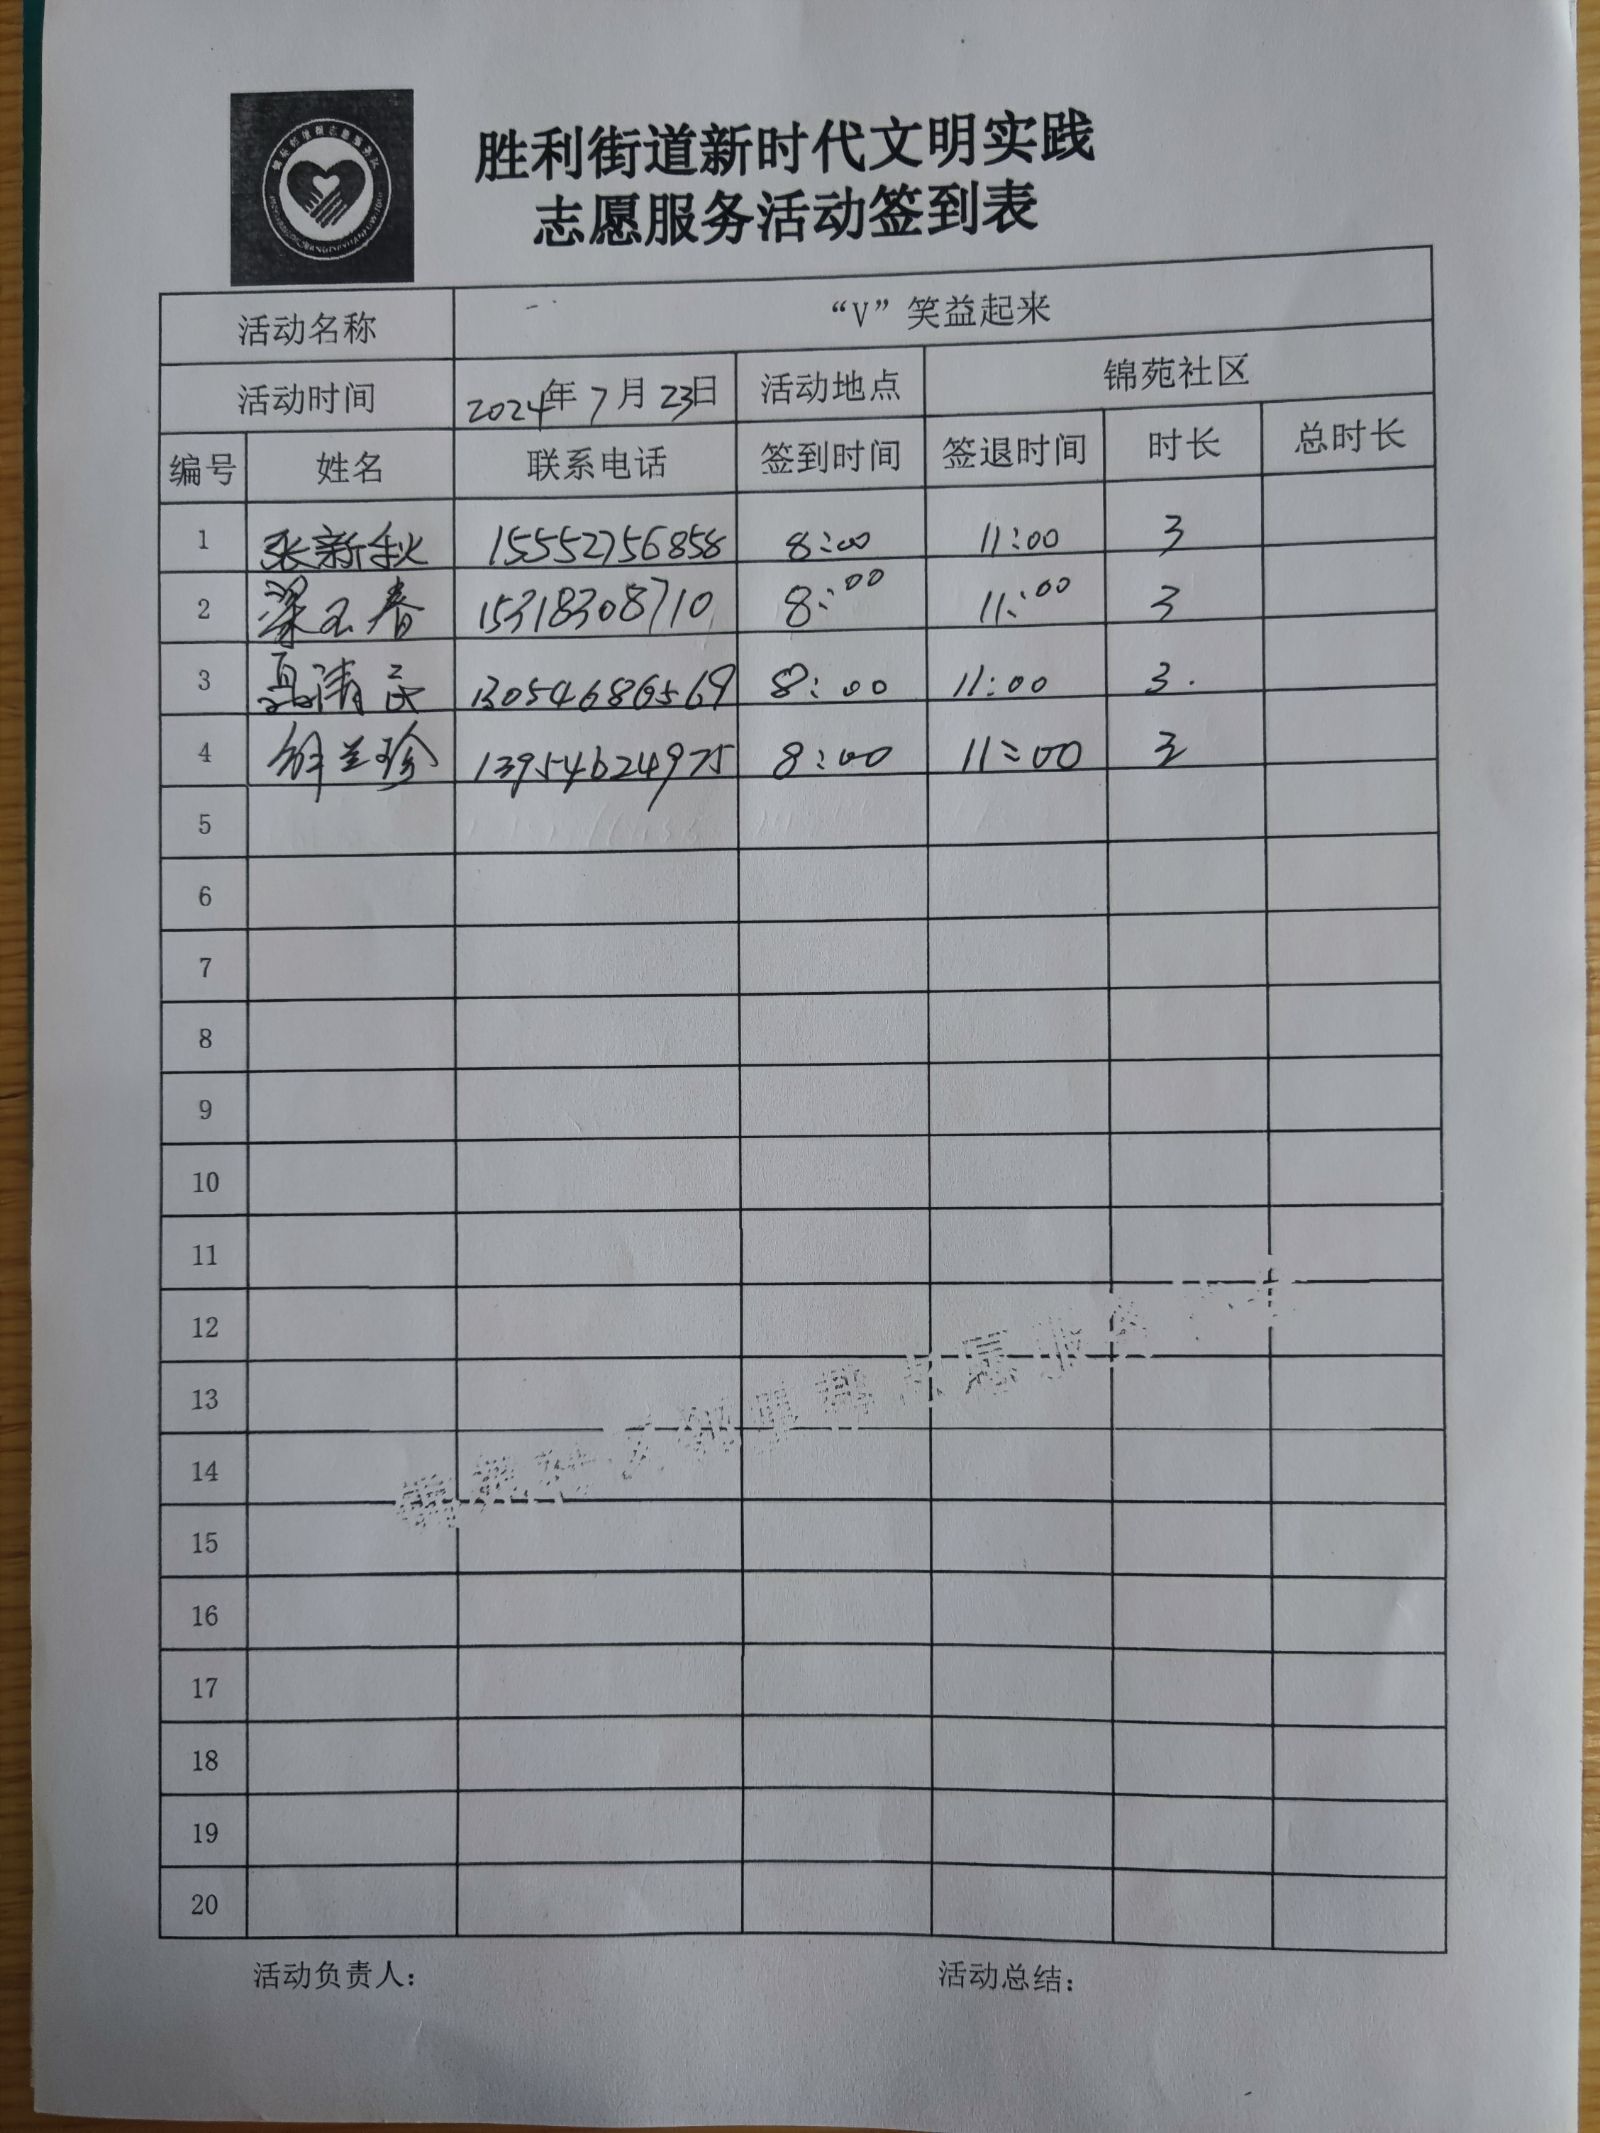 胜利街道新时代文明实践
志愿服务活动签到表
活动名称 “V”笑益起来
活动时间 2024年7月23日 活动地点 锦苑社区
编号 姓名 联系电话 签到时间 签退时间 时长 总时长
1 张新秋 15552756858 8:00 11:00 3
2 梁玉春 15318308710 8:00 11:00 3
3 清 13054686569 8:00 11:00 3.
4 兰珍 13954624975 8:00 11:00 3
5
6
7
8
9
10
11
12
13
14
15
16
17
18
19
20
活动负责人: 活动总结: